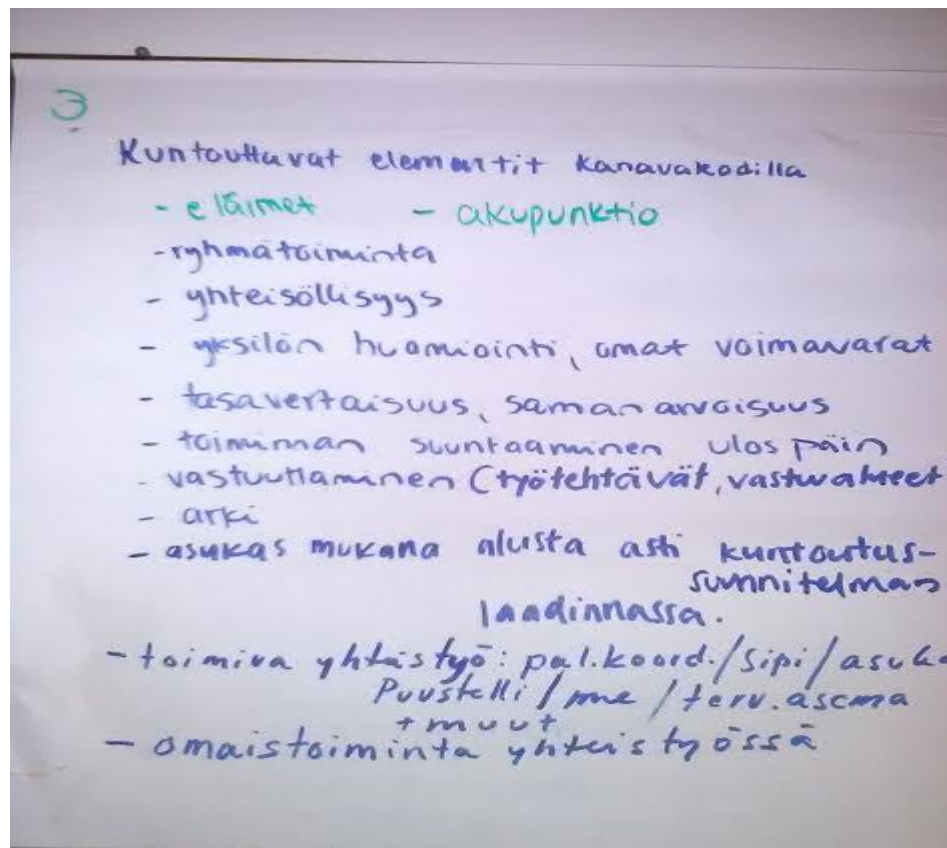 3
Kuntouttavat elementit Kanavakodilla
- eläimet - akupunktio
- ryhmätoiminta
- yhteisöllisyys
- yksilön huomiointi, omat voimavarat
- tasavertaisuus, samanarvoisuus
- toiminnan suuntaaminen ulospäin
- vastuuttaminen (työtehtävät, vastuualueet
- arki
- asukas mukana alusta asti kuntoutus-
suunnitelman
laadinnassa.
- toimiva yhteistyö: pal.koord./Sipi/asuka
Puustelli / me / terv.asema
+ muut
- omaistoiminta yhteistyössä